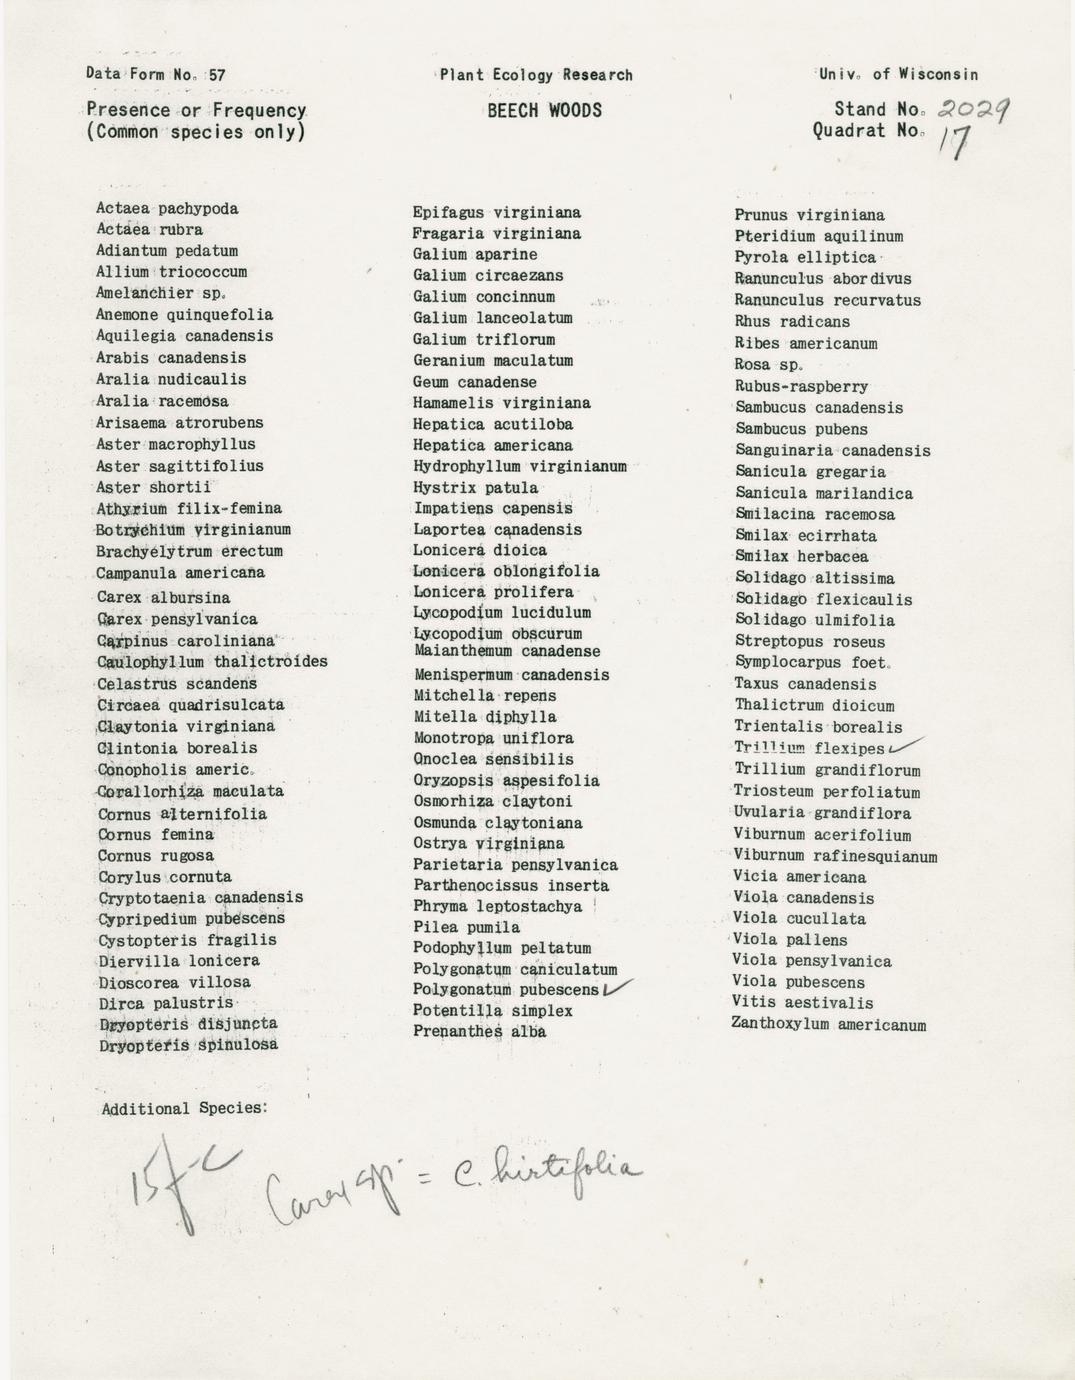 Data Form No. 57
Plant Ecology Research
Univ. of Wisconsin
Presence or Frequency
(Common species only)
BEECH WOODS
Stand No. 2029
Quadrat No. 17
Actaea pachypoda
Actaea rubra
Adiantum pedatum
Allium triococcum
Amelanchier sp.
Anemone quinquefolia
Aquilegia canadensis
Arabis canadensis
Aralia nudicaulis
Aralia racemosa
Arisaema atrorubens
Aster macrophyllus
Aster sagittifolius
Aster shortii
Athyrium filix-femina
Botrychium virginianum
Brachyelytrum erectum
Campanula americana
Carex albursina
Carex pensylvanica
Carpinus caroliniana
Caulophyllum thalictroides
Celastrus scandens
Circaea quadrisulcata
Claytonia virginiana
Clintonia borealis
Conopholis americ.
Corallorhiza maculata
Cornus alternifolia
Cornus femina
Cornus rugosa
Corylus cornuta
Cryptotaenia canadensis
Cypripedium pubescens
Cystopteris fragilis
Diervilla lonicera
Dioscorea villosa
Dirca palustris
Dryopteris disjuncta
Dryopteris spinulosa
Epifagus virginiana
Fragaria virginiana
Galium aparine
Galium circaezans
Galium concinnum
Galium lanceolatum
Galium triflorum
Geranium maculatum
Geum canadense
Hamamelis virginiana
Hepatica acutiloba
Hepatica americana
Hydrophyllum virginianum
Hystrix patula
Impatiens capensis
Laportea canadensis
Lonicera dioica
Lonicera oblongifolia
Lonicera prolifera
Lycopodium lucidulum
Lycopodium obscurum
Maianthemum canadense
Menispermum canadensis
Mitchella repens
Mitella diphylla
Monotropa uniflora
Onoclea sensibilis
Oryzopsis aspesifolia
Osmorhiza claytoni
Osmunda claytoniana
Ostrya virginiana
Parietaria pensylvanica
Parthenocissus inserta
Phryma leptostachya
Pilea pumila
Podophyllum peltatum
Polygonatum caniculatum
Polygonatum pubescens ✓
Potentilla simplex
Prenanthes alba
Prunus virginiana
Pteridium aquilinum
Pyrola elliptica
Ranunculus abordivus
Ranunculus recurvatus
Rhus radicans
Ribes americanum
Rosa sp.
Rubus-raspberry
Sambucus canadensis
Sambucus pubens
Sanguinaria canadensis
Sanicula gregaria
Sanicula marilandica
Smilacina racemosa
Smilax ecirrhata
Smilax herbacea
Solidago altissima
Solidago flexicaulis
Solidago ulmifolia
Streptopus roseus
Symplocarpus foet.
Taxus canadensis
Thalictrum dioicum
Trientalis borealis
Trillium flexipes ✓
Trillium grandiflorum
Triosteum perfoliatum
Uvularia grandiflora
Viburnum acerifolium
Viburnum rafinesquianum
Vicia americana
Viola canadensis
Viola cucullata
Viola pallens
Viola pensylvanica
Viola pubescens
Vitis aestivalis
Zanthoxylum americanum
Additional Species:
Carex sp. = C. hirtifolia